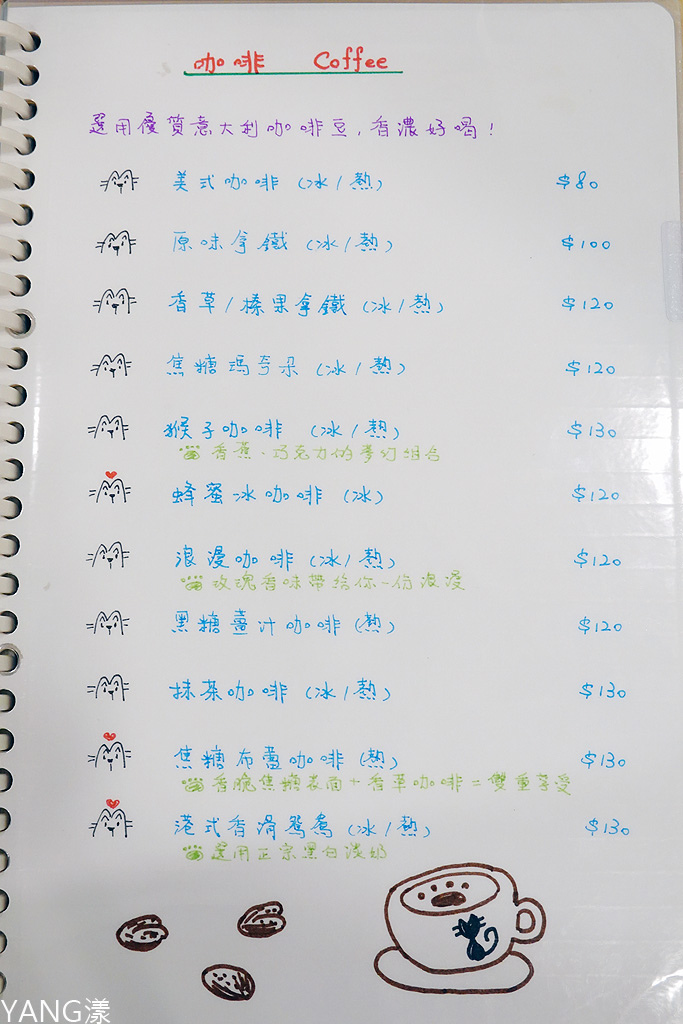 咖啡 Coffee
選用優質意大利咖啡豆,香濃好喝!
美式咖啡 (冰/熱) $80
原味拿鐵 (冰/熱) $100
香草/榛果拿鐵 (冰/熱) $120
焦糖瑪奇朵 (冰/熱) $120
猴子咖啡 (冰/熱) $130
香蕉、巧克力的夢幻組合
蜂蜜冰咖啡 (冰) $120
浪漫咖啡 (冰/熱) $120
玫瑰香味帶給你一份浪漫
黑糖薑汁咖啡 (熱) $120
抹茶咖啡 (冰/熱) $130
焦糖布蕾咖啡 (熱) $130
香脆焦糖表面+香草咖啡=雙重享受
港式香滑鴛鴦 (冰/熱) $130
選用正宗黑白淡奶
YANG漾